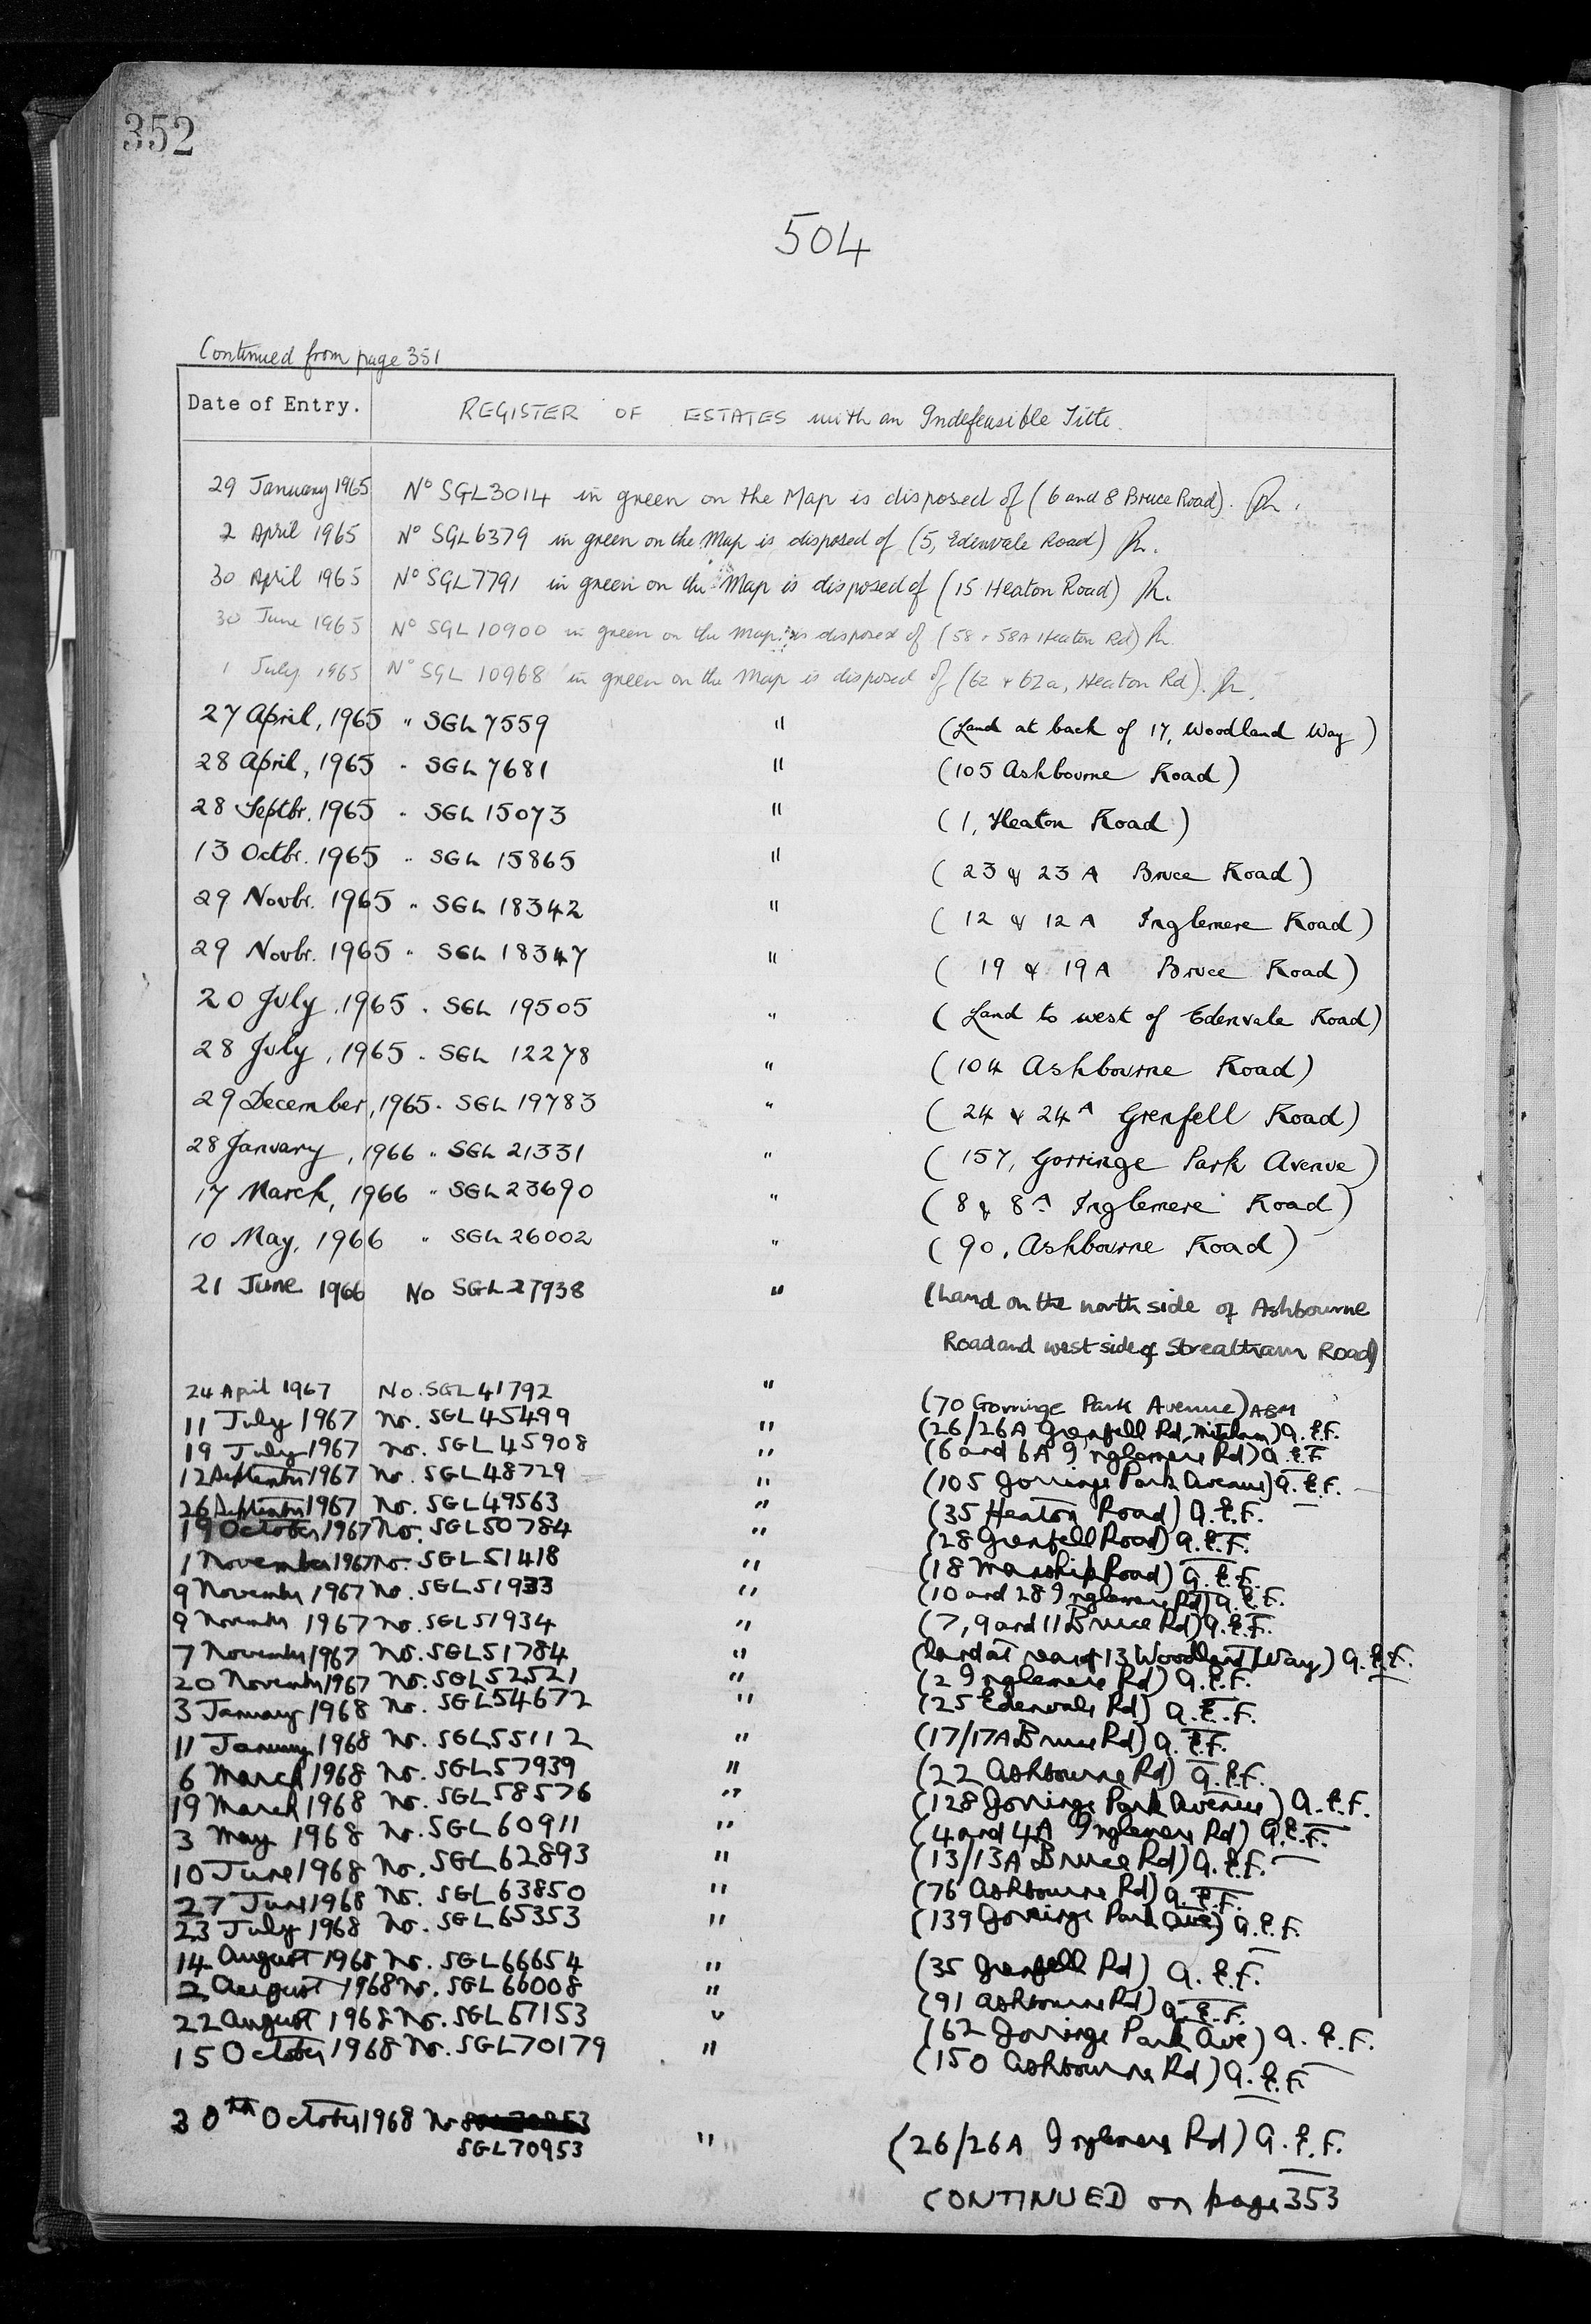 352
504
Continued from page 351
Date of Entry. REGISTER OF ESTATES with an Indefeasible Title.
29 January 1965 No SGL3014 in green on the Map is disposed of (6 and 8 Bruce Road).
2 April 1965 No SGL6379 in green on the Map is disposed of (5, Edenvale Road)
30 April 1965 No SGL7791 in green on the Map is disposed of (15 Heaton Road)
30 June 1965 No SGL 10900 in green on the Map is disposed of (58 & 58A Heaton Rd)
1 July 1965 No SGL 10968 in green on the Map is disposed of (62 & 62a, Heaton Rd).
27 April, 1965 " SGL 7559 " (Land at back of 17, Woodland Way)
28 April, 1965 " SGL 7681 " (105 Ashbourne Road)
28 Septbr. 1965 " SGL 15073 " (1, Heaton Road)
13 Octbr. 1965 " SGL 15865 " (23 & 23A Bruce Road)
29 Novbr. 1965 " SGL 18342 " (12 & 12A Inglemere Road)
29 Novbr. 1965 " SGL 18347 " (19 & 19A Bruce Road)
20 July, 1965 " SGL 19505 " (Land to west of Edenvale Road)
28 July, 1965 " SGL 12278 " (104 Ashbourne Road)
29 December, 1965 " SGL 19783 " (24 & 24A Grenfell Road)
28 January, 1966 " SGL 21331 " (157, Gorringe Park Avenue)
17 March, 1966 " SGL 23690 " (8 & 8A Inglemere Road)
10 May, 1966 " SGL 26002 " (90, Ashbourne Road)
21 June 1966 No SGL27938 " (Land on the north side of Ashbourne
Road and west side of Strealtham Road)
24 April 1967 No. SGL41792 " (70 Gorringe Park Avenue) ABM
11 July 1967 No. SGL45499 " (26/26A Grenfell Rd, Mitcham) A.E.F.
19 July 1967 No. SGL45908 " (6 and 6A Inglemere Rd) A.E.F
12 September 1967 No. SGL48729 " (105 Gorringe Park Avenue) A.E.F.
26 September 1967 No. SGL49563 " (35 Heaton Road) A.E.F.
19 October 1967 No. SGL50784 " (28 Grenfell Road) A.E.F.
1 November 1967 No. SGL51418 " (18 Manship Road) A.E.F.
9 November 1967 No. SGL51933 " (10 and 28 Inglemere Rd) A.E.F.
9 November 1967 No. SGL51934 " (7, 9 and 11 Bruce Rd) A.E.F.
7 November 1967 No. SGL51784 " (land at rear of 13 Woodland Way) A.E.F.
20 November 1967 No. SGL52521 " (2 Inglemere Rd) A.E.F.
3 January 1968 No. SGL54672 " (25 Edenvale Rd) A.E.F.
11 January 1968 No. SGL55112 " (17/17A Bruce Rd) A.E.F.
6 March 1968 No. SGL57939 " (22 Ashbourne Rd) A.E.F.
19 March 1968 No. SGL58576 " (128 Gorringe Park Avenue) A.E.F.
3 May 1968 No. SGL60911 " (4 and 4A Inglemere Rd) A.E.F.
10 June 1968 No. SGL62893 " (13/13A Bruce Rd) A.E.F.
27 June 1968 No. SGL63850 " (76 Ashbourne Rd) A.E.F.
23 July 1968 No. SGL65353 " (139 Gorringe Park Ave) A.E.F.
14 August 1968 No. SGL66654 " (35 Grenfell Rd) A.E.F.
2 August 1968 No. SGL66008 " (91 Ashbourne Rd) A.E.F.
22 August 1968 No. SGL67153 " (62 Gorringe Park Ave) A.E.F.
15 October 1968 No. SGL70179 " (150 Ashbourne Rd) A.E.F.
30th October 1968 No
SGL70953 " (26/26A Inglemere Rd) A.E.F.
CONTINUED on page 353